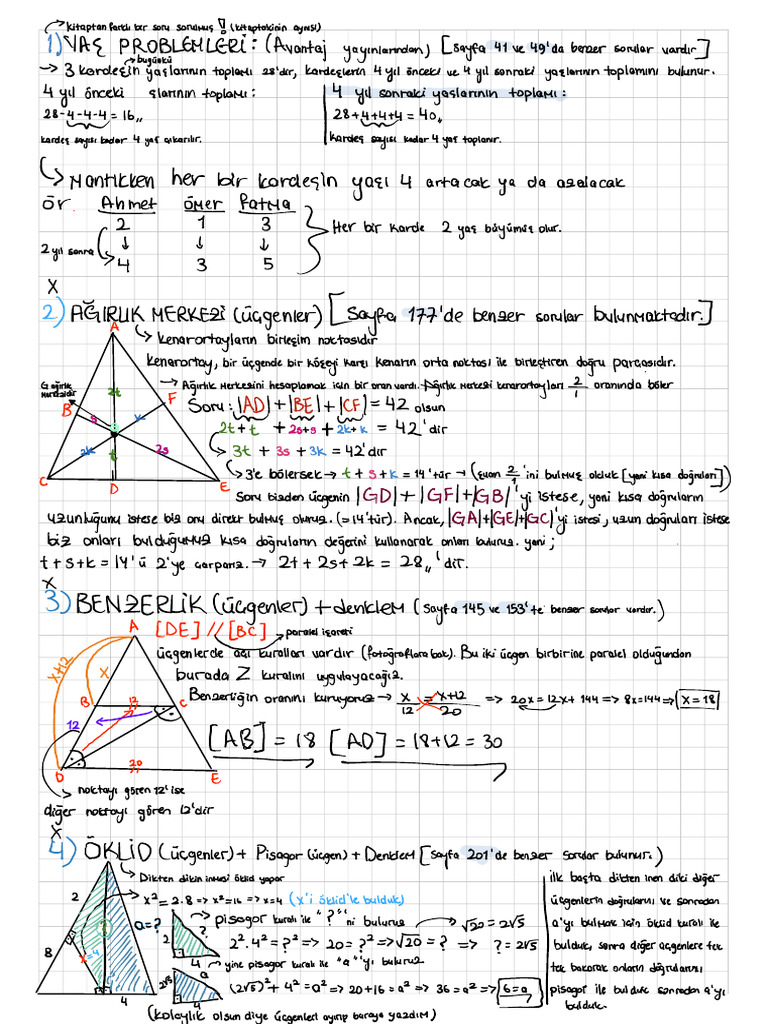 kitaptan farklı bir soru sorulmuş ! (kitaptakinin aynısı)
1) YAŞ PROBLEMLERİ: (Avantaj yayınlarından) [Sayfa 41 ve 49'da benzer sorular vardır]
bugünkü
→ 3 kardeşin yaşlarının toplamı 28'dir, kardeşlerin 4 yıl önceki ve 4 yıl sonraki yaşlarının toplamını bulunur.
4 yıl önceki şlarının toplamı:
28-4-4-4 = 16,,
kardeş sayısı kadar 4 yaş çıkarılır.
4 yıl sonraki yaşlarının toplamı:
28+4+4+4 = 40,,
kardeş sayısı kadar 4 yaş toplanır.
Mantıkken her bir kardeşin yaşı 4 artacak ya da azalacak
ör. Ahmet ömer Fatma
2 1 3
2 yıl sonra ↓ ↓ ↓
4 3 5
Her bir karde 2 yaş büyümüş olur.
x
2) AĞIRLIK MERKEZİ (üçgenler) [Sayfa 177'de benzer sorular bulunmaktadır.]
A
→ kenarortayların birleşim noktasıdır
kenarortay, bir üçgende bir köşeyi karşı kenarın orta noktası ile birleştiren doğru parçasıdır.
→ Ağırlık merkezini hesaplamak için bir oran vardı. Ağırlık merkezi kenarortayları 2/1 oranında böler
G ağırlık merkezidir
B
F
2t
s
k
G
2k
t
2s
C
D
E
Soru: |AD|+|BE|+|CF| = 42 olsun
2t+t + 2s+s + 2k+k = 42'dir
3t + 3s + 3k = 42'dir
3'e bölersek → t+s+k = 14'tür → (şuan 2/1'ini bulmuş olduk [yani kısa doğruları])
Soru bizden üçgenin |GD|+|GF|+|GB|'yi istese, yani kısa doğruların
uzunluğunu istese biz onu direkt bulmuş oluruz. (=14'tür). Ancak, |GA|+|GE|+|GC|'yi istesi, uzun doğruları istese
biz onları bulduğumuz kısa doğruların değerini kullanarak onları buluruz. yani;
t+s+k = 14'ü 2'ye çarparız. → 2t + 2s + 2k = 28,,'dir.
x
3) BENZERLİK (üçgenler) + denklem (Sayfa 145 ve 153'te benzer sorular vardır.)
A
[DE] // [BC] → paralel işareti
üçgenlerde açı kuralları vardır (fotoğraflara bak). Bu iki üçgen birbirine paralel olduğundan
burada Z kuralını uygulayacağız.
Benzerliğin oranını kuruyoruz → x/12 = x+12/20 => 20x = 12x + 144 => 8x=144 => x = 18
x+12
x
B
12
C
12
D
20
E
[AB] = 18 [AD] = 18+12 = 30
→ noktayı gören 12'ise
diğer noktayı gören 12'dir
x
4) ÖKLİD (üçgenler) + Pisagor (üçgen) + Denklem [Sayfa 201'de benzer sorular bulunur.)
→ Dikten dikin inmesi öklid yapar
x² = 2.8 => x²=16 => x=4 (x'i öklid'le bulduk)
a=?
2
8
?
x=4
4
?
2
4
→ pisagor kuralı ile "?"'ni buluruz
√20 = 2√5
2².4² = ?² => 20 = ?² => √20 = ? => ? = 2√5
→ yine pisagor kuralı ile "a"'yı buluruz
a
2√5
4
(2√5)² + 4² = a² => 20+16 = a² => 36 = a² => 6 = a
(kolaylık olsun diye üçgenleri ayırıp buraya yazdım)
ilk başta dikten inen diki diğer
üçgenlerin doğrularını ve sonradan
a'yı bulmak için öklid kuralı ile
bulduk, sonra diğer üçgenlere tek
tek bakarak onların doğrularını
pisagor ile bulduk sonradan a'yı
bulduk.